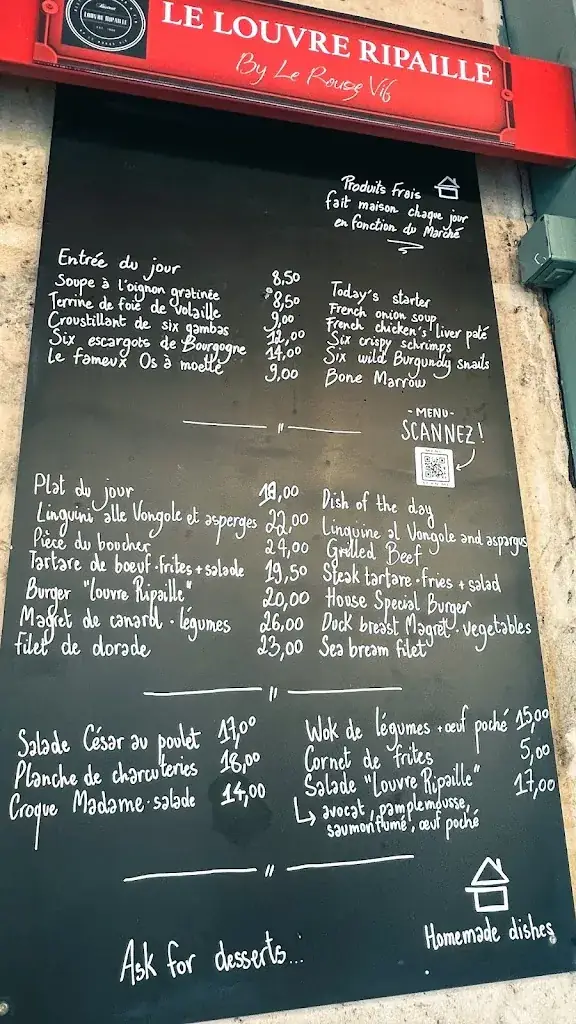 Bistrot
LOUVRE RIPAILLE
LE LOUVRE RIPAILLE
By Le Rouge Vif
Produits Frais
fait maison chaque jour
en fonction du Marché
Entrée du jour 8,50 Today's starter
Soupe à l'oignon gratinée 8,50 French onion soup
Terrine de foie de volaille 9,00 French chicken's liver paté
Croustillant de six gambas 12,00 Six crispy schrimps
Six escargots de Bourgogne 14,00 Six wild Burgundy snails
le fameux Os à moelle 9,00 Bone Marrow
-MENU-
SCANNEZ!
Plat du jour 18,00 Dish of the day
Linguini alle Vongole et asperges 22,00 Linguine al Vongole and aspargus
Pièce du boucher 24,00 Grilled Beef
Tartare de boeuf·frites+salade 19,50 Steak tartare·fries + salad
Burger "Louvre Ripaille" 20,00 House Special Burger
Magret de canard · légumes 26,00 Duck breast Magret · vegetables
filet de dorade 23,00 Sea bream filet
Salade César au poulet 17,00 Wok de légumes + œuf poché 15,00
Planche de charcuteries 18,00 Cornet de frites 5,00
Croque Madame·salade 14,00 Salade "Louvre Ripaille" 17,00
avocat, pamplemousse,
saumon fumé, œuf poché
Ask for desserts...
Homemade dishes